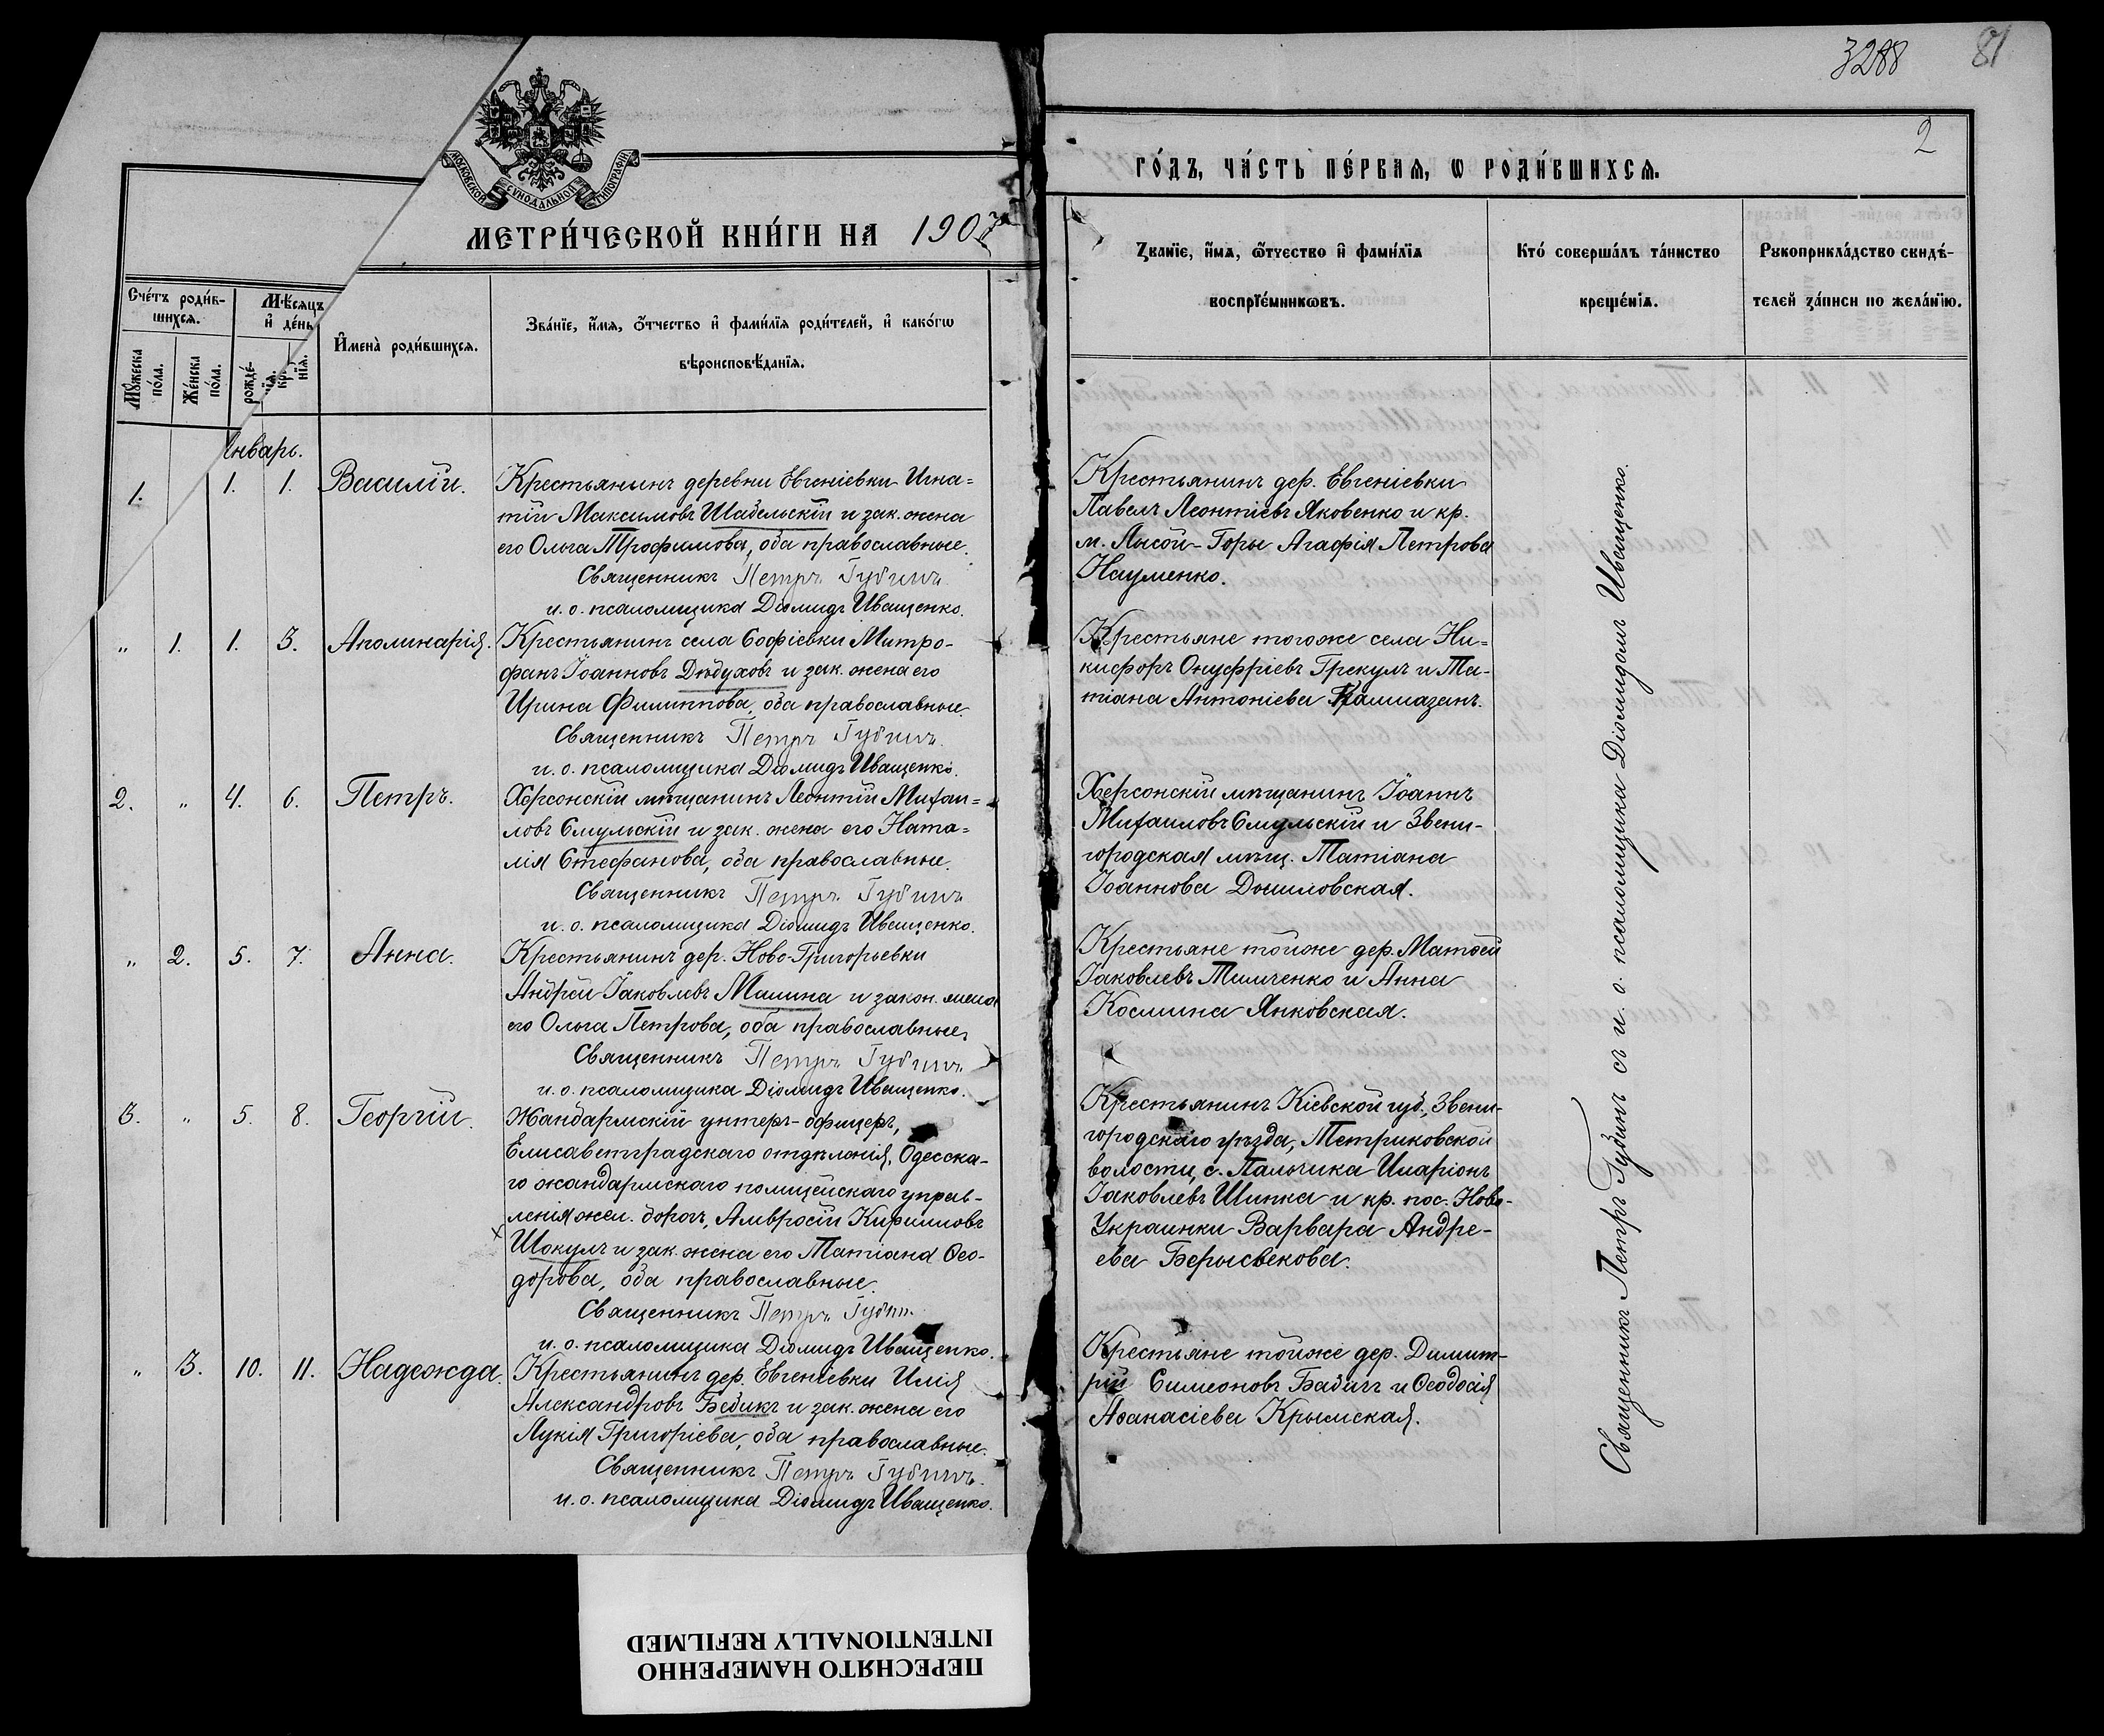 3288
81
2
МОСКОВСКОЙ СѴНОДАЛЬНОЙ ТИПОГРАФІИ
МЕТРИ́ЧЕСКОЙ КНИ́ГИ НА 1907
ГО́ДЪ, ЧА́СТЬ ПЕ́РВАѦ, Ѡ РОДИ́ВШИХСѦ.
Сче́тъ роди́в-
шихсѧ.
Мѣ́сѧцъ
и҆ де́нь
Мꙋ́жеска по́ла.
Же́нска по́ла.
рожде́-
нїѧ.
кр
нїѧ.
И҆мена̀ роди́вшихсѧ.
Зва́нїе, и҆́мѧ, ѻ҆́тчество и҆ фамі́лїѧ роди́телей, и҆ како́гѡ
вѣроисповѣ́данїѧ.
Зва́нїе, и҆́мѧ, ѻ҆́тчество и҆ фамі́лїѧ
воспрїе́мникѡвъ.
Кто̀ соверша́лъ та́инство
креще́нїѧ.
Рꙋкоприкла́дство свидѣ́-
телей за́писи по жела́нїю.
нварь.
1. 1. 1. Василій.
Крестьянинъ деревни Евгеніевки Игна=
тій Максимовъ Шадельскій и зак. жена
его Ольга Трофимова, оба православные.
Священникъ Петръ Губинъ
и. о. псаломщика Діомидъ Иващенко.
Крестьянинъ дер. Евгеніевки
Павелъ Леонтіевъ Яковенко и кр.
м. Лысой-Горы Агафія Петрова
Науменко.
" 1. 1. 3. Аполинарія.
Крестьянинъ села Софіевки Митро-
фанъ Іоанновъ Дѣдуховъ и зак. жена его
Ирина Филиппова, оба православные.
Священникъ Петръ Губинъ
и. о. псаломщика Діомидъ Иващенко.
Крестьяне тогоже села Ни=
кифоръ Онуфріевъ Грекулъ и Та-
тіана Антоніева
2. " 4. 6. Петръ.
Херсонскій мѣщанинъ Леонтій Михаи=
ловъ Смульскій и зак. жена его Ната=
лія Стефанова, оба православные.
Священникъ Петръ Губинъ
и. о. псаломщика Діомидъ Иващенко.
Херсонскій мѣщанинъ Іоаннъ
Михаиловъ Смульскій и Звени-
городская мѣщ. Татіана
Іоаннова
" 2. 5. 7. Анна.
Крестьянинъ дер. Ново-Григорьевки
Андрей Іаковлевъ Малина и закон. жена
его Ольга Петрова, оба православные,
Священникъ Петръ Губинъ
и. о. псаломщика Діомидъ Иващенко.
Крестьяне тойже дер. Матвей
Іаковлевъ Тимченко и Анна
Космина Янковская.
3. " 5. 8. Георгій.
Жандармскій унтеръ-офицеръ,
Елисаветградскаго отдѣленія, Одесска-
го жандармскаго полицейскаго управ-
ленія жел. дорогъ, Амвросій Кирилловъ
Шокулъ и зак. жена его Татіана Ѳео-
дорова, оба православные.
Священникъ Петръ Губинъ
и. о. псаломщика Діомидъ Иващенко.
Крестьянинъ Кіевской губ., Звени-
городскаго уѣзда, Петриковской
волости, с. Пальчика Иларіонъ
Іаковлевъ Шипка и кр. пос. Ново-
Украинки Варвара Андре-
ева
" 3. 10. 11. Надежда.
Крестьянинъ дер. Евгеніевки Илія
Александровъ Бедикъ и зак. жена его
Лукія Григоріева, оба православные.
Священникъ Петръ Губинъ.
и. о. псаломщика Діомидъ Иващенко.
Крестьяне тойже дер. Димит-
рій Симеоновъ Бабичъ и Ѳеодосія
Аѳанасіева Крымская.
Священникъ Петръ Губинъ съ и. о. псаломщика Діомидомъ Иващенко.
ПЕРЕСНЯТО НАМЕРЕННО
INTENTIONALLY REFILMED